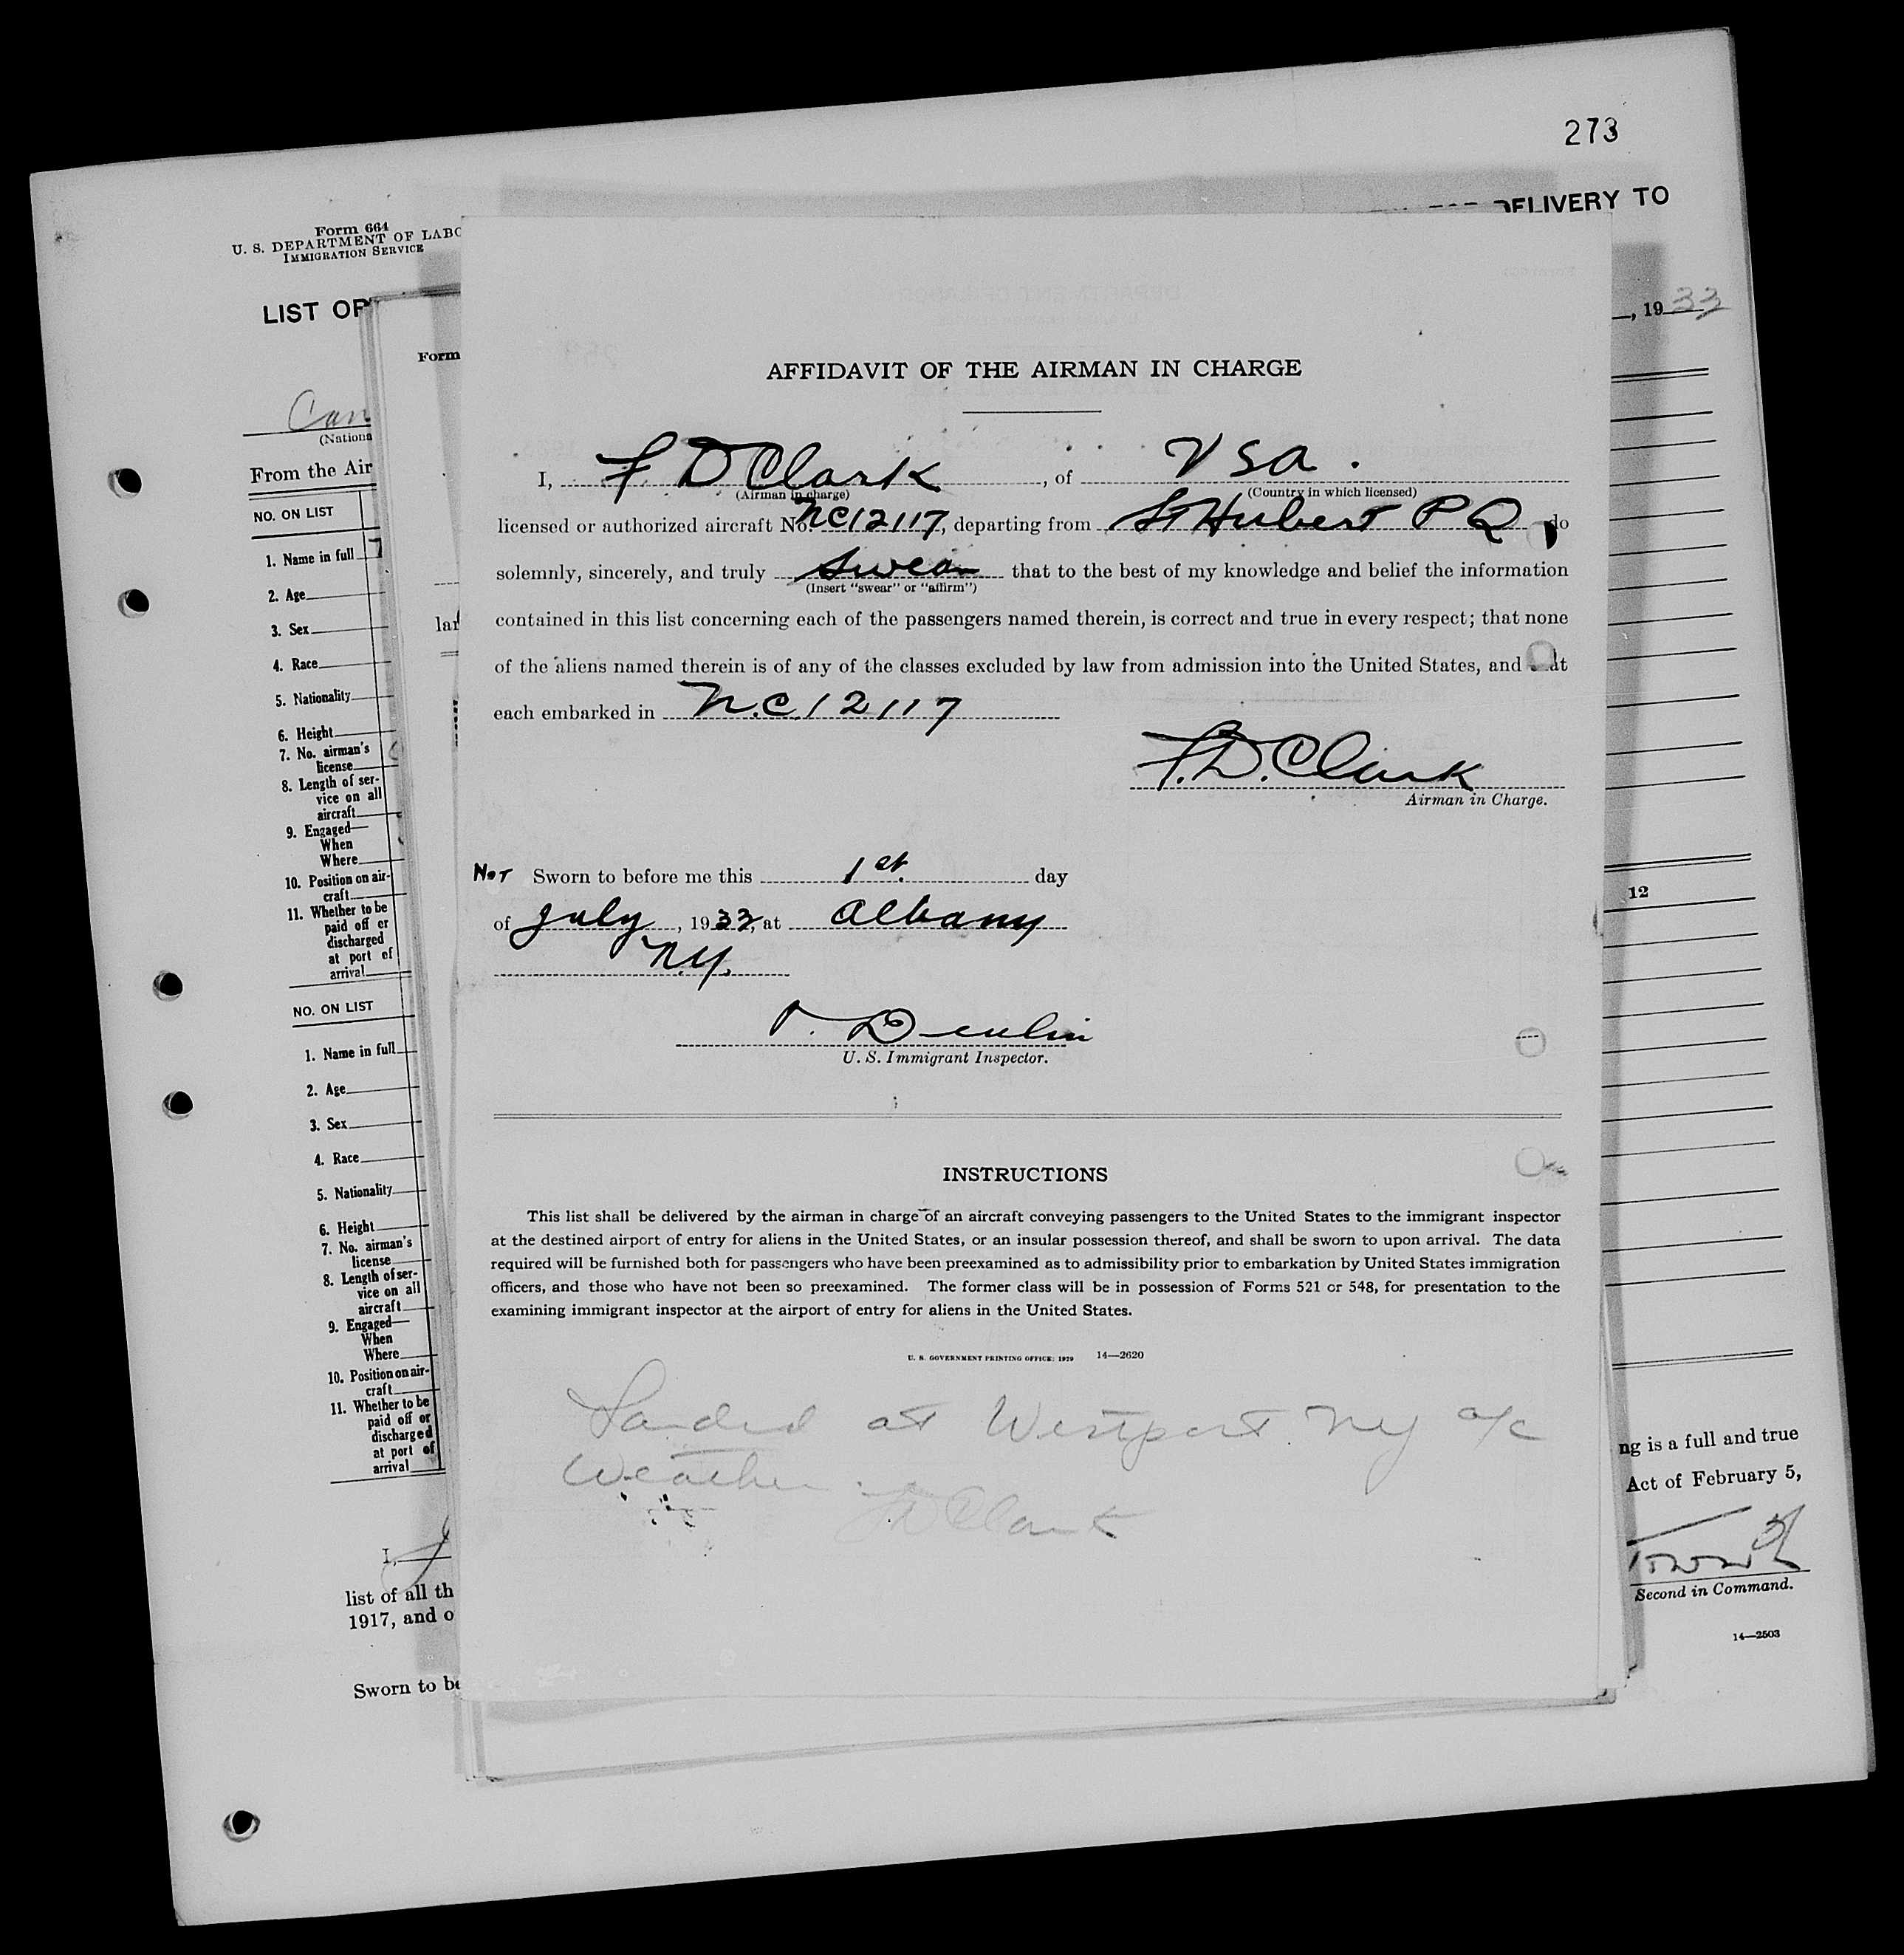 273
DELIVERY TO
Form 664
U. S. DEPARTMENT OF LABO
IMMIGRATION SERVICE
LIST OF
, 19 33
Form
Can
(Nationa
From the Air
NO. ON LIST
1. Name in full
2. Age
3. Sex
4. Race
5. Nationality
6. Height
7. No. airman's
license
8. Length of ser-
vice on all
aircraft
9. Engaged—
When
Where
10. Position on air-
craft
11. Whether to be
paid off or
discharged
at port of
arrival
12
NO. ON LIST
1. Name in full
2. Age
3. Sex
4. Race
5. Nationality
6. Height
7. No. airman's
license
8. Length of ser-
vice on all
aircraft
9. Engaged—
When
Where
10. Position on air-
craft
11. Whether to be
paid off or
discharged
at port of
arrival
I,
list of all th
1917, and o
Sworn to be
lar
AFFIDAVIT OF THE AIRMAN IN CHARGE
I, F. D Clark, of USA.
(Airman in charge) (Country in which licensed)
licensed or authorized aircraft No. NC12117, departing from St Hubert P Q do
solemnly, sincerely, and truly swear that to the best of my knowledge and belief the information
(Insert "swear" or "affirm")
contained in this list concerning each of the passengers named therein, is correct and true in every respect; that none
of the aliens named therein is of any of the classes excluded by law from admission into the United States, and that
each embarked in N.C.12117
F.D. Clark
Airman in Charge.
NOT Sworn to before me this 1st. day
of July, 1933, at Albany
N.Y.
Devlin
U. S. Immigrant Inspector.
INSTRUCTIONS
This list shall be delivered by the airman in charge of an aircraft conveying passengers to the United States to the immigrant inspector
at the destined airport of entry for aliens in the United States, or an insular possession thereof, and shall be sworn to upon arrival. The data
required will be furnished both for passengers who have been preexamined as to admissibility prior to embarkation by United States immigration
officers, and those who have not been so preexamined. The former class will be in possession of Forms 521 or 548, for presentation to the
examining immigrant inspector at the airport of entry for aliens in the United States.
U. S. GOVERNMENT PRINTING OFFICE: 1929 14—2620
Landed at Westport NY a/c
Weather.
FD Clark
ng is a full and true
Act of February 5,
Second in Command.
14—2503